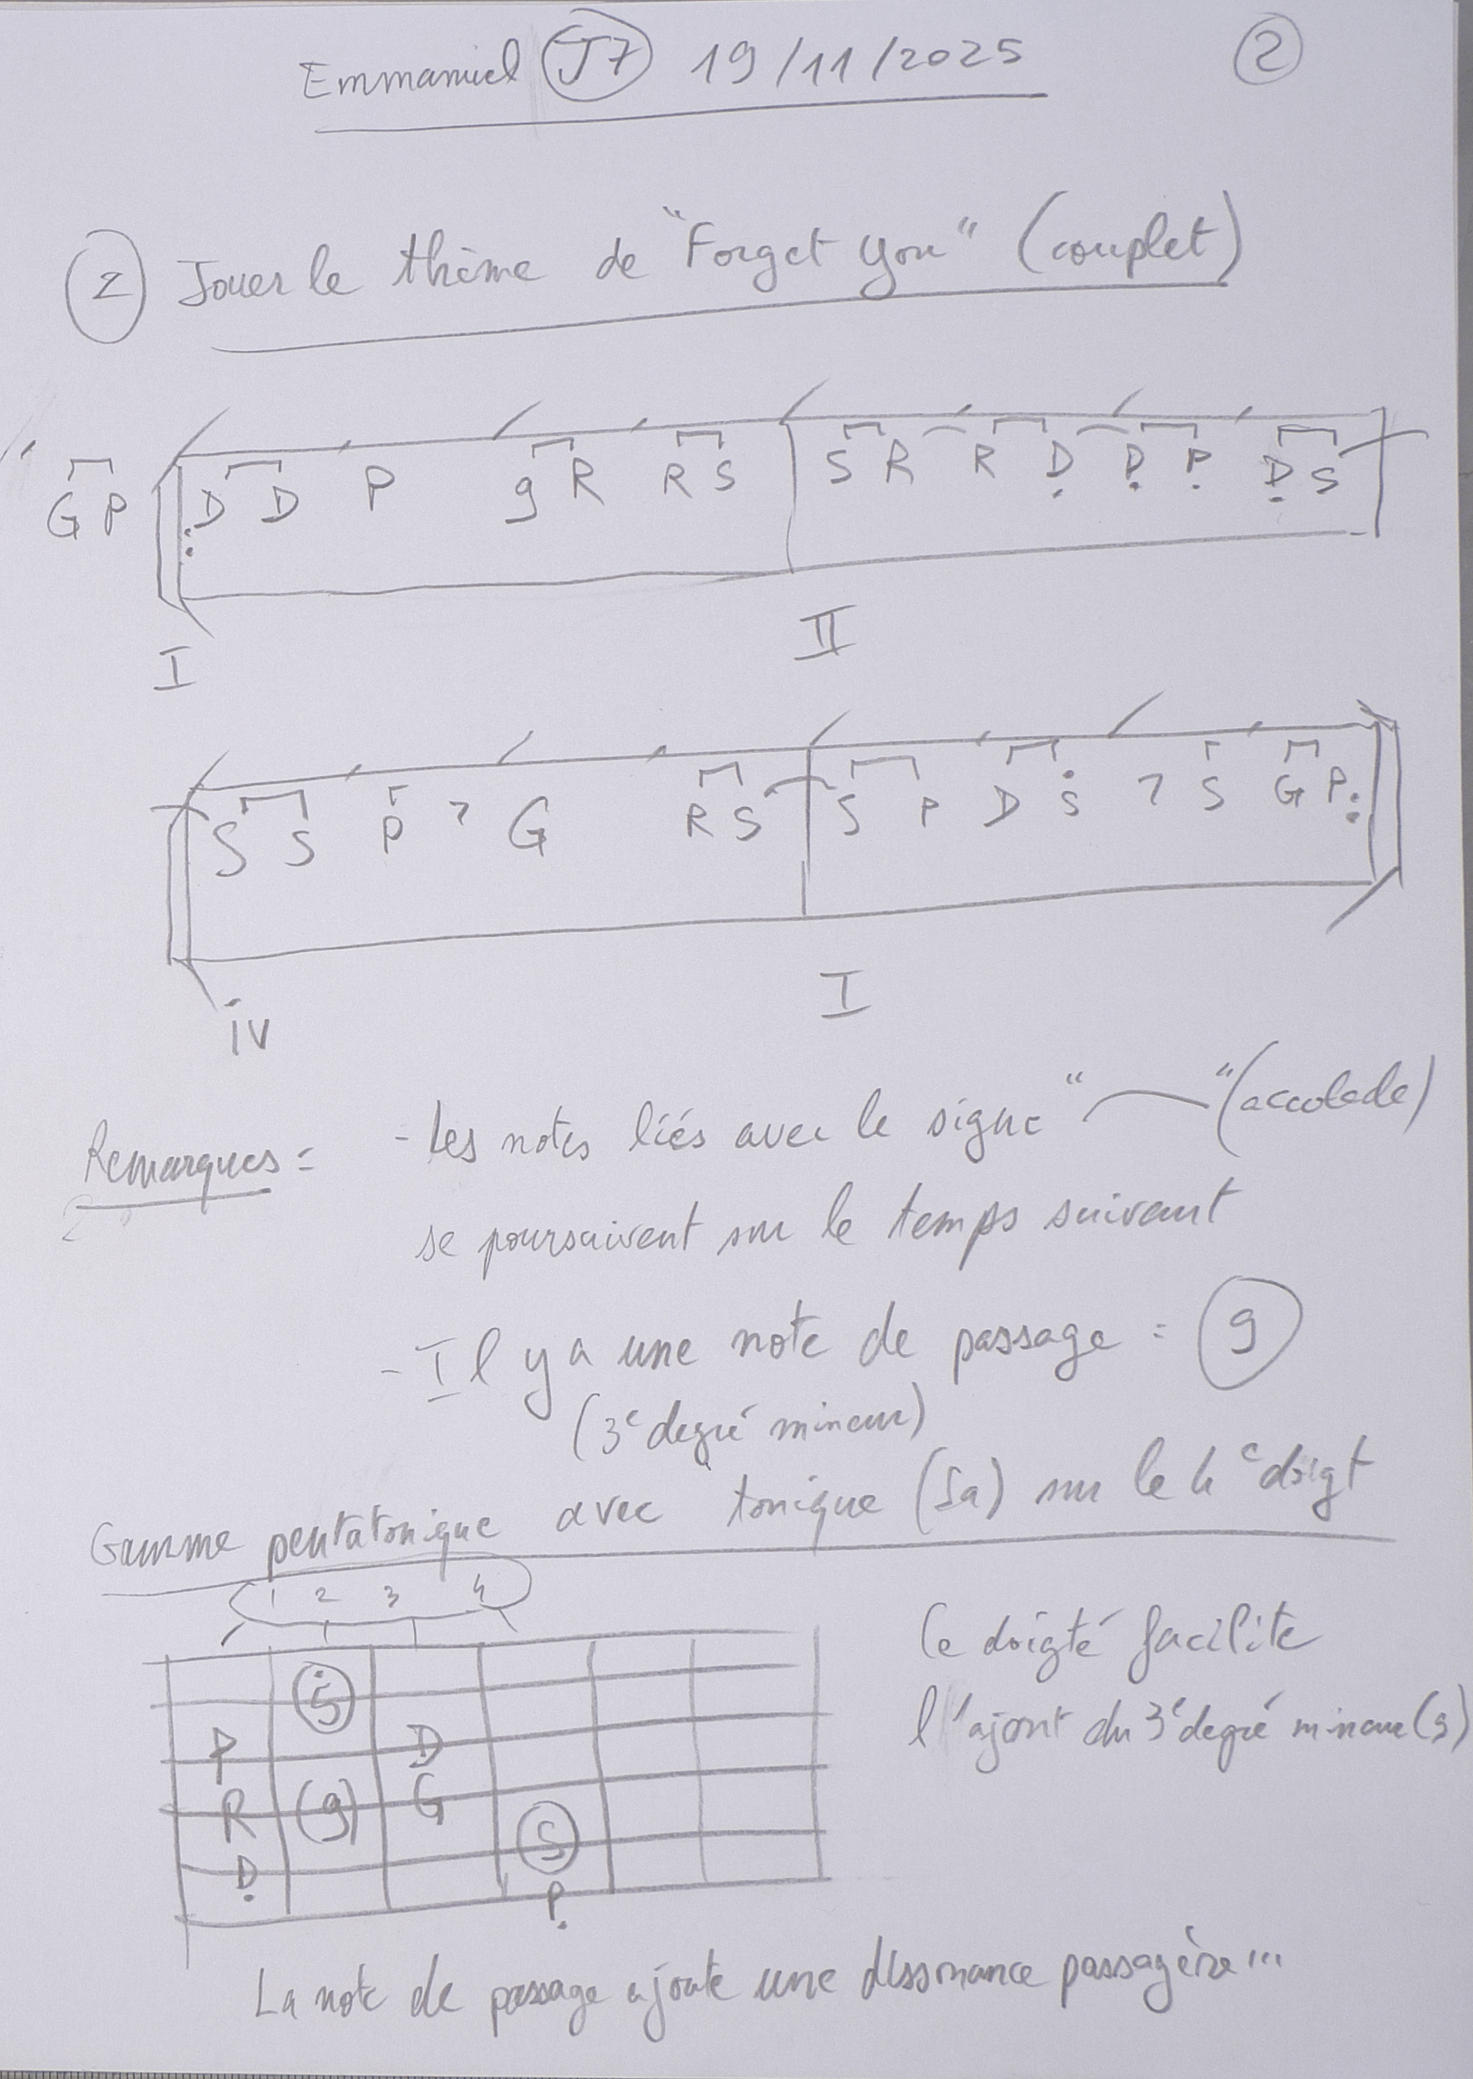 Emmanuel J7 19/11/2025 2
2 Jouer le thème de "Forget you" (couplet)
G P D D P g R R S S R R Ḍ Ḍ P̣ Ḍ S
I II
S S P 7 G R S S P D Ṡ 7 S G P
iv I
Remarques = - Les notes liés avec le signe "⁀" (accolade)
se poursuivent sur le temps suivant
- Il y a une note de passage : g
(3e degré mineur)
Gamme pentatonique avec tonique (Sa) sur le 4e doigt
1 2 3 4
Ṡ
P D
R (g) G
S
Ḍ
P̣
Ce doigté facilite
l'ajout du 3e degré mineur (g)
La note de passage ajoute une dissonance passagère...